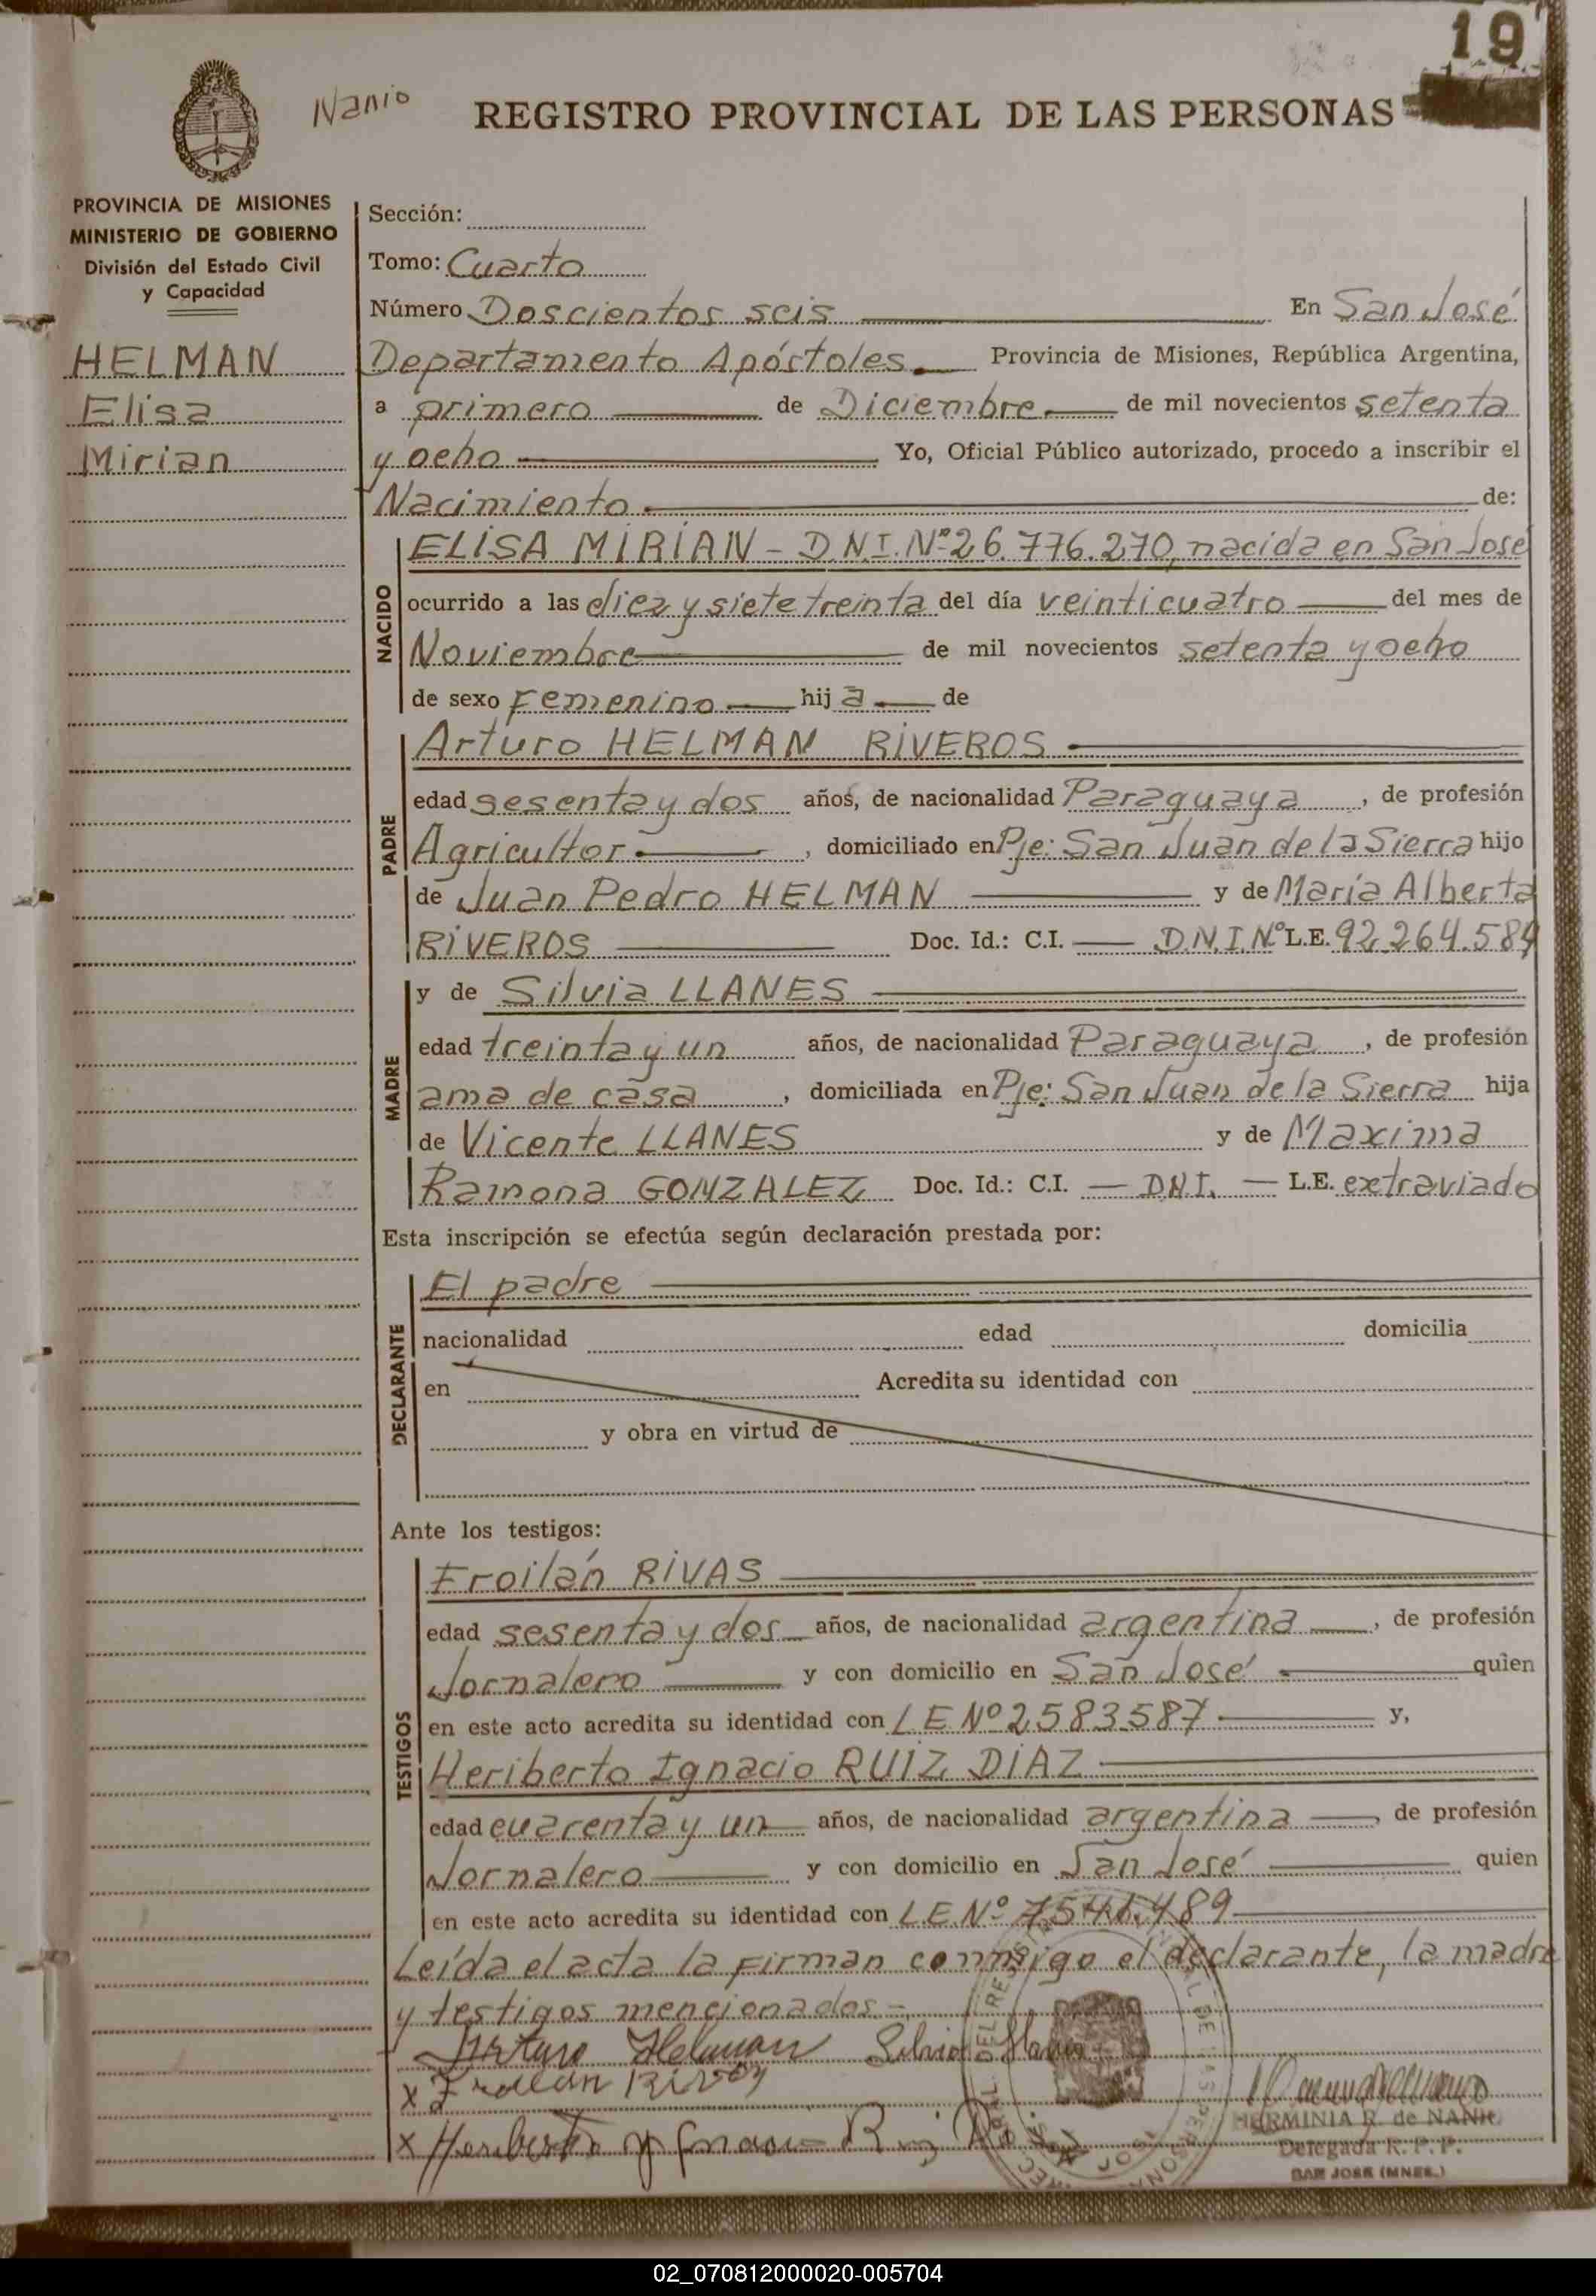 19
Nanio
REGISTRO PROVINCIAL DE LAS PERSONAS
PROVINCIA DE MISIONES
MINISTERIO DE GOBIERNO
División del Estado Civil
y Capacidad
HELMAN
Elisa
Mirian
Sección:
Tomo: Cuarto
Número Doscientos seis En San José
Departamento Apóstoles. Provincia de Misiones, República Argentina,
a primero de Diciembre de mil novecientos setenta
y ocho Yo, Oficial Público autorizado, procedo a inscribir el
Nacimiento de:
NACIDO
ELISA MIRIAN - D.N.I. Nº 26.776.270, nacida en San José
ocurrido a las diez y siete treinta del día veinticuatro del mes de
Noviembre de mil novecientos setenta y ocho
de sexo Femenino hija de
PADRE
Arturo HELMAN RIVEROS
edad sesenta y dos años, de nacionalidad Paraguaya, de profesión
Agricultor, domiciliado en Pje: San Juan de la Sierra hijo
de Juan Pedro HELMAN y de María Alberta
RIVEROS Doc. Id.: C.I. — D.N.I. Nº L.E. 92.264.584
MADRE
y de Silvia LLANES
edad treinta y un años, de nacionalidad Paraguaya, de profesión
ama de casa, domiciliada en Pje: San Juan de la Sierra hija
de Vicente LLANES y de Maxima
Ramona GONZALEZ Doc. Id.: C.I. — DNI. — L.E. extraviado
Esta inscripción se efectúa según declaración prestada por:
DECLARANTE
El padre
nacionalidad edad domicilia
en Acredita su identidad con
y obra en virtud de
Ante los testigos:
TESTIGOS
Froilán RIVAS
edad sesenta y dos años, de nacionalidad argentina, de profesión
Jornalero y con domicilio en San José quien
en este acto acredita su identidad con LE Nº 2583587 y,
Heriberto Ignacio RUIZ DIAZ
edad cuarenta y un años, de nacionalidad argentina, de profesión
Jornalero y con domicilio en San José quien
en este acto acredita su identidad con LE Nº 7546.489
Leída el acta la firman conmigo el declarante, la madre
y testigos mencionados.-
Arturo Helman Silvia Llanes
x Froilan Rivas
x Heriberto Ygnacio Ruiz Diaz
HERMINIA R. de
Delegada R. P. P.
SAN JOSE (MNES.)
02_070812000020-005704